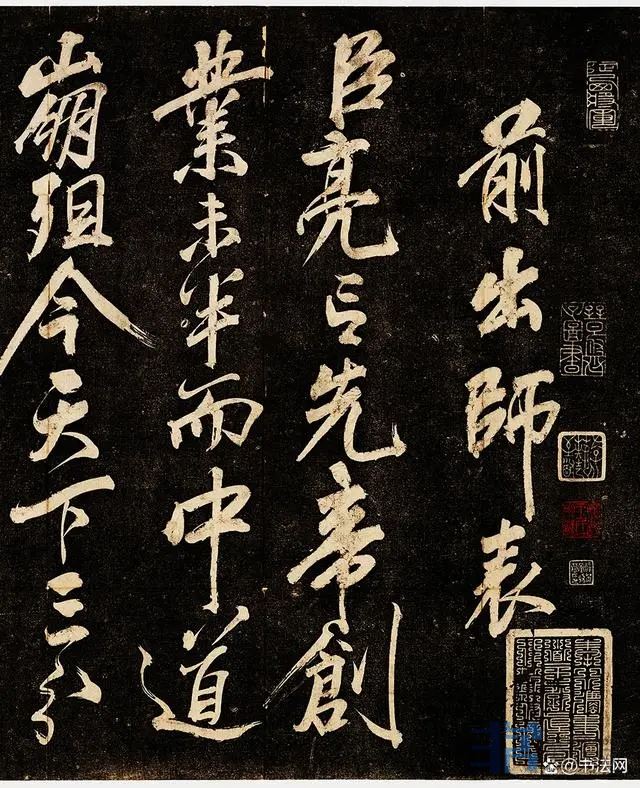 前出師表
臣亮言先帝創
業未半而中道
崩殂今天下三分
@书法网